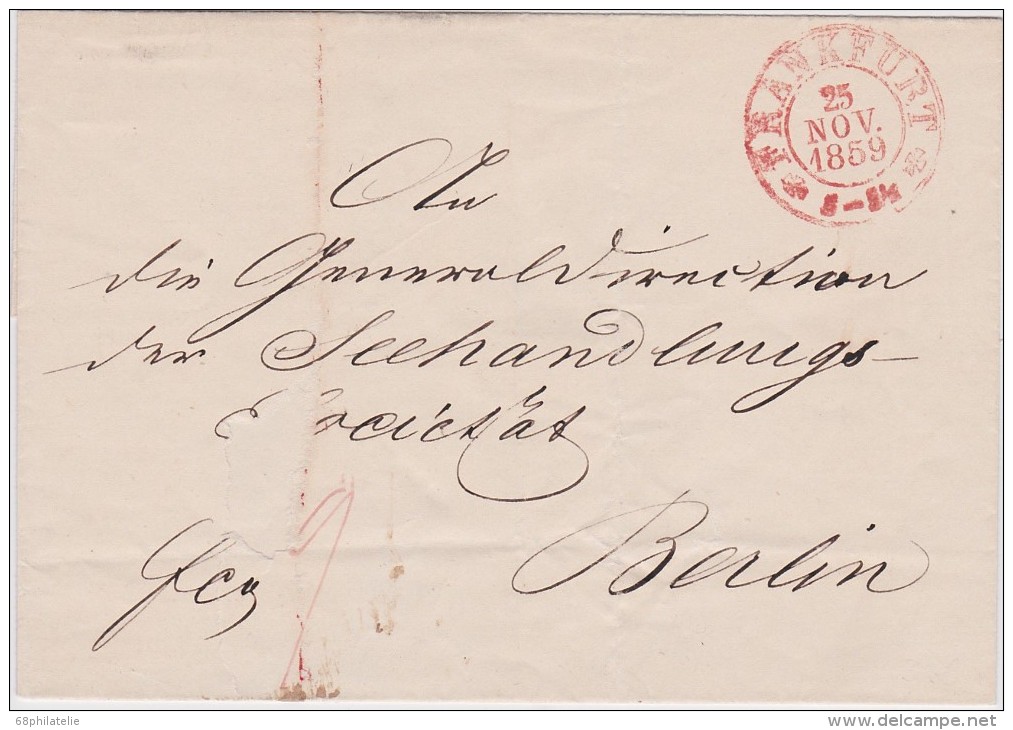 FRANKFURT
25
NOV.
1859
An
die Generaldirection
der Seehandlungs-
Societät
Berlin
68philatelie
delcampe.net